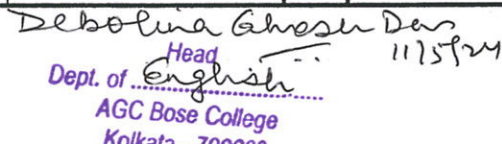 Debolina Ghosh Das
11/5/24
Head
Dept. of English
AGC Bose College
Kolkata